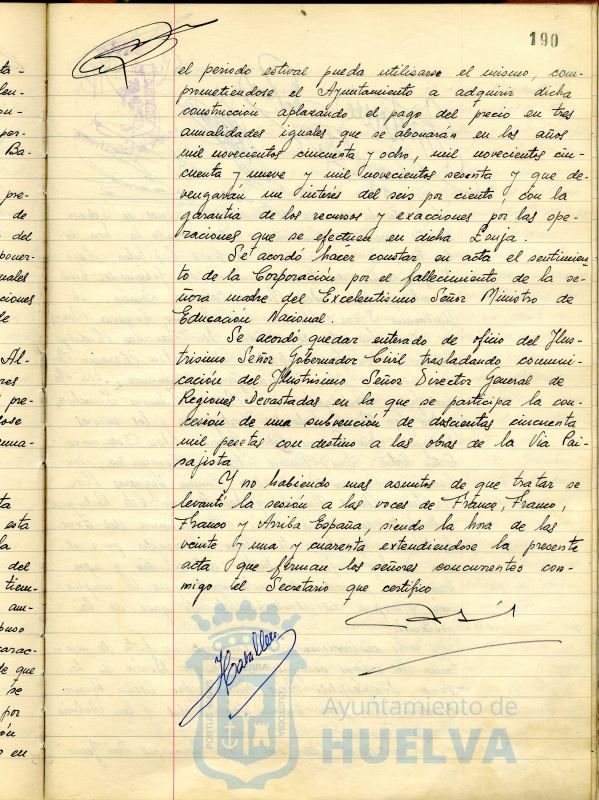 190
el periodo estival pueda utilisarse el mismo, com-
prometiendose el Ayuntamiento a adquirir dicha
construcción aplazando el pago del precio en tres
anualidades iguales que se abonarán en los años
mil novecientos cincuenta y ocho, mil novecientos cin-
cuenta y nueve y mil novecientos sesenta y que de-
vengarán un interés del seis por ciento, con la
garantia de los recursos y exacciones por las ope-
raciones que se efectuen en dicha Lonja.
Se acordó hacer constar en acta el sentimien-
to de la Corporación por el fallecimiento de la se-
ñora madre del Excelentisimo Señor Ministro de
Educación Nacional.
Se acordó quedar enterado de oficio del Ilus-
trisimo Señor Gobernador Civil trasladando comuni-
cación del Ilustrisimo Señor Director General de
Regiones Devastadas en la que se participa la con-
cesión de una subvención de doscientas cincuenta
mil pesetas con destino a las obras de la Via Pai-
sajista
Y no habiendo mas asuntos de que tratar se
levantó la sesión a las voces de Franco, Franco,
Franco y Arriba España, siendo la hora de las
veinte y una y cuarenta extendiendose la presente
acta que firman los señores concurrentes con-
migo el Secretario que certifico
Caballero
Ayuntamiento de
HUELVA